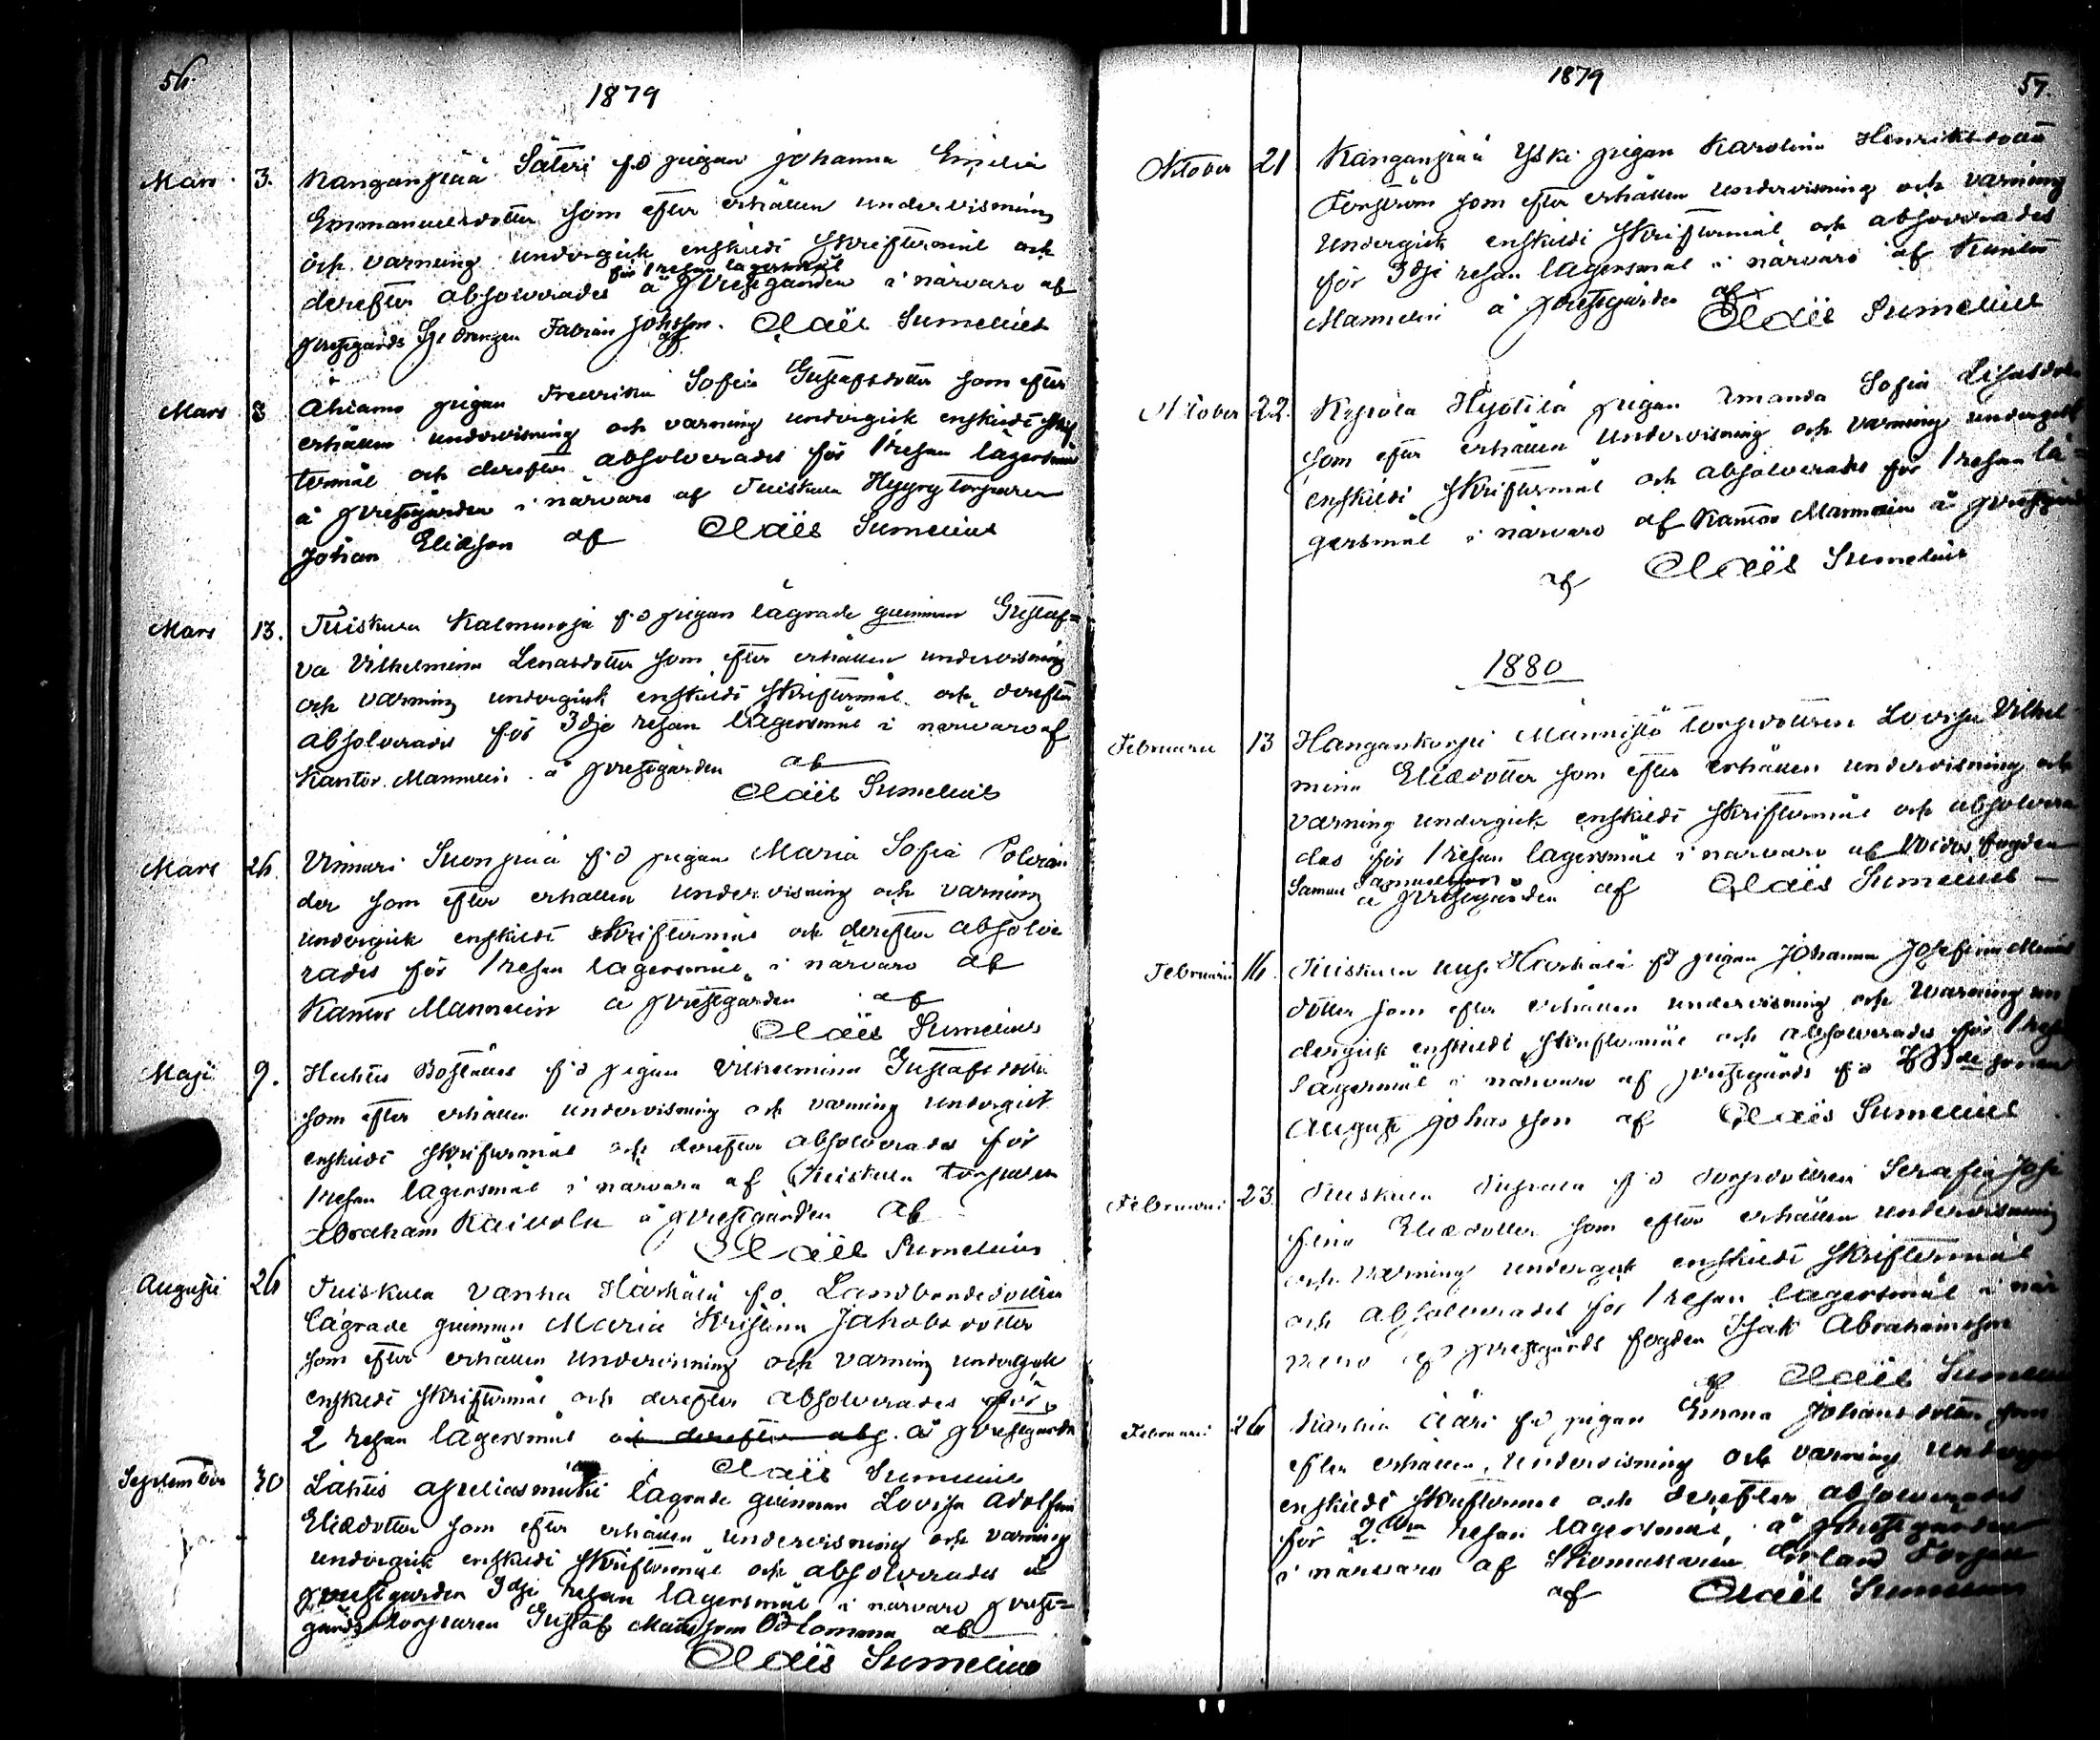 56.
1879
Mars 3. Kanganpää Säteri f.d. pigan Johanna Emilia
Emmanuelsdotter som efter erhållen undervisning
och varning undergick enskildt skriftermål och
för 1 resan lägersmål
derefter absolverades å prestgården i närvaro af
prestgårds drengen Fabian Johsson. af Claës Sumelius
Mars 3 Ahiamo pigan Fredrika Sofia Gustafsdotter som efter
erhållen undervisning och varning undergick enskildt skrif
termål och derefter absolverades för 1 resan lägersmål
å prestgården i närvaro af Tuiskula Hyyry torparen
Johan Eliasson af Claës Sumelius
Mars 13. Tuiskula Kalmunoja f.d. pigan lägrade qvinnan Gustaf=
va Vilhelmina Lenasdotter som efter erhållen undervisning
och varning undergick enskildt skriftermål och derefter
absolverades för 3dje resan lägersmål i närvaro af
Kantor Mannelin å prestgården af
Claës Sumelius
Mars 26. Vinnari Suonpää f.d. pigan Maria Sofia Polvian
der som efter erhållen undervisning och varning
undergick enskildt skriftermål och derefter absolve
rades för 1 resan lägersmål i närvaro af
Kantor Mannelin å prestgården af
Claës Sumelius
Maji 9. Huhtis Boställes f.d. pigan Vilhelmina Gustafsdotter
som efter erhållen undervisning och varning undergick
enskildt skriftermål och derefter absolverades för
1 resan lägersmål i närvaro af Tuiskula torparen
Abraham Kaivola å prestgården af
Claës Sumelius
Augusti 26 Tuiskula Vanha Härkälä f.d. Landbondedottren
lägrade qvinnan Maria Kristina Jakobsdotter
som efter erhållen undervisning och varning undergick
enskildt skriftermål och derefter absolverades för
2 resan lägersmål och derefter abs. å prestgården
Claës Sumelius
September 30 Lähtis lägrade qvinnan Lovisa Adolfina
Eliædotter som efter erhållen undervisning och varning
undergick enskildt skriftermål och absolverades å
prestgården 3dje resan lägersmål i närvaro prest=
gårds torparen Gustaf Mattsson Blomma af
Claës Sumelius
1879
57.
Oktober 21 Kanganpää Yski pigan Karolina Henriksdotter
Forström som efter erhållen undervisning och varning
undergick enskildt skriftermål och absolverades
för 3dje resan lägersmål i närvaro af Kantor
Mannelin å prestgården af Claës Sumelius
Oktober 22. Kepola Hyötilä pigan Amanda Sofia Lisasdotter
som efter erhållen undervisning och varning undergick
enskildt skriftermål och absolverades för 1 resan lä=
gersmål i närvaro af Kantor Mannelin å prestgården
af Claës Sumelius
1880
Februarii 13 Hangankorpi Männistö torpdottren Lovisa Vilhel
mina Eliædotter som efter erhållen undervisning och
varning undergick enskildt skriftermål och absolvera
des för 1 resan lägersmål i närvaro af fogden
Samuel Samuelsson å prestgården af Claës Sumelius
Februarii 16. Tuiskula Härkälä f.d. pigan Johanna Josefina
dotter som efter erhållen undervisning och varning un
dergick enskildt skriftermål och absolverades för 1 resan
lägersmål i närvaro af prestgårds f.d.
August Johansson af Claës Sumelius
Februarii 23. Tuiskula f.d. torpdottren Serafia Jose
fina Eliædotter som efter erhållen undervisning
och varning undergick enskildt skriftermål
och absolverades för 1 resan lägersmål i när
varo af prestgårds fogden Isak Abrahamsson
af Claës Sumelius
Februarii 26 Ääri f.d. pigan Emma Johansdotter som
efter erhållen undervisning och varning undergick
enskildt skriftermål och derefter absolverades
för 2dra resan lägersmål, å prestgården
i närvaro af Skomakaren
af Claës Sumelius